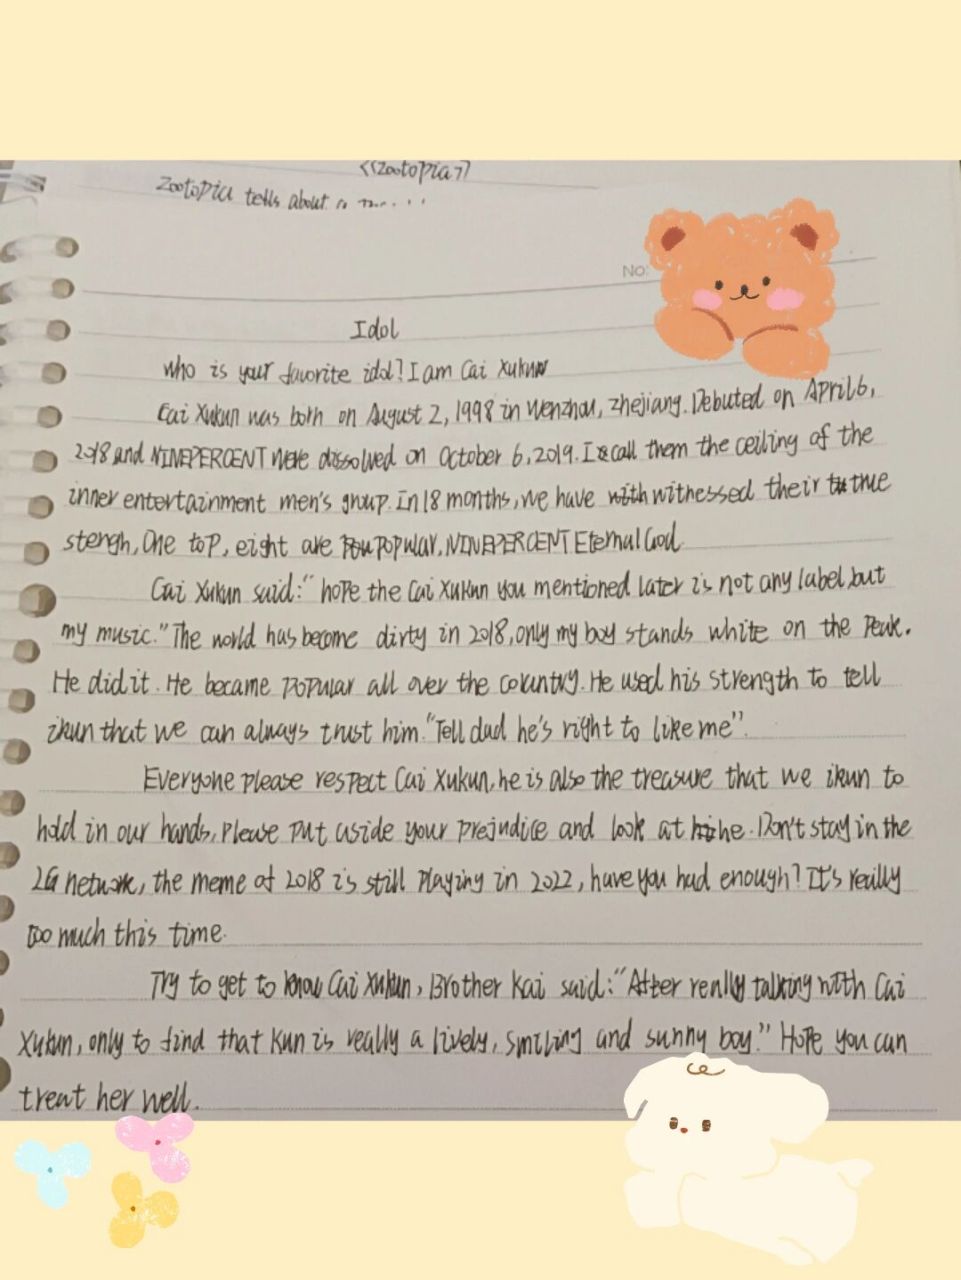 《Zootopia》
Zootopia tells about a
No:
Idol
Who is your favorite idol? I am Cai Xukun
Cai Xukun was both on August 2, 1998 in Wenzhou, Zhejiang. Debuted on April 6,
2018 and NINEPERCENT were dissolved on October 6, 2019. I call them the ceiling of the
inner entertainment men's group. In 18 months, we have witnessed their true
stengh, One top, eight are popular, NINEPERCENT Eternal God
Cai Xukun said: "hope the Cai Xukun you mentioned later is not any label but
my music." The world has become dirty in 2018, only my boy stands white on the peak.
He did it. He became popular all over the country. He used his strength to tell
ikun that we can always trust him. "Tell dad he's right to like me".
Everyone please respect Cai Xukun, he is also the treasure that we ikun to
hold in our hands, please put aside your prejudice and look at he. Don't stay in the
2G network, the meme of 2018 is still playing in 2022, have you had enough? It's really
too much this time.
Try to get to know Cai Xukun, Brother Kai said: "After really talking with Cai
Xukun, only to find that Kun is really a lively, smiling and sunny boy." Hope you can
treat her well.